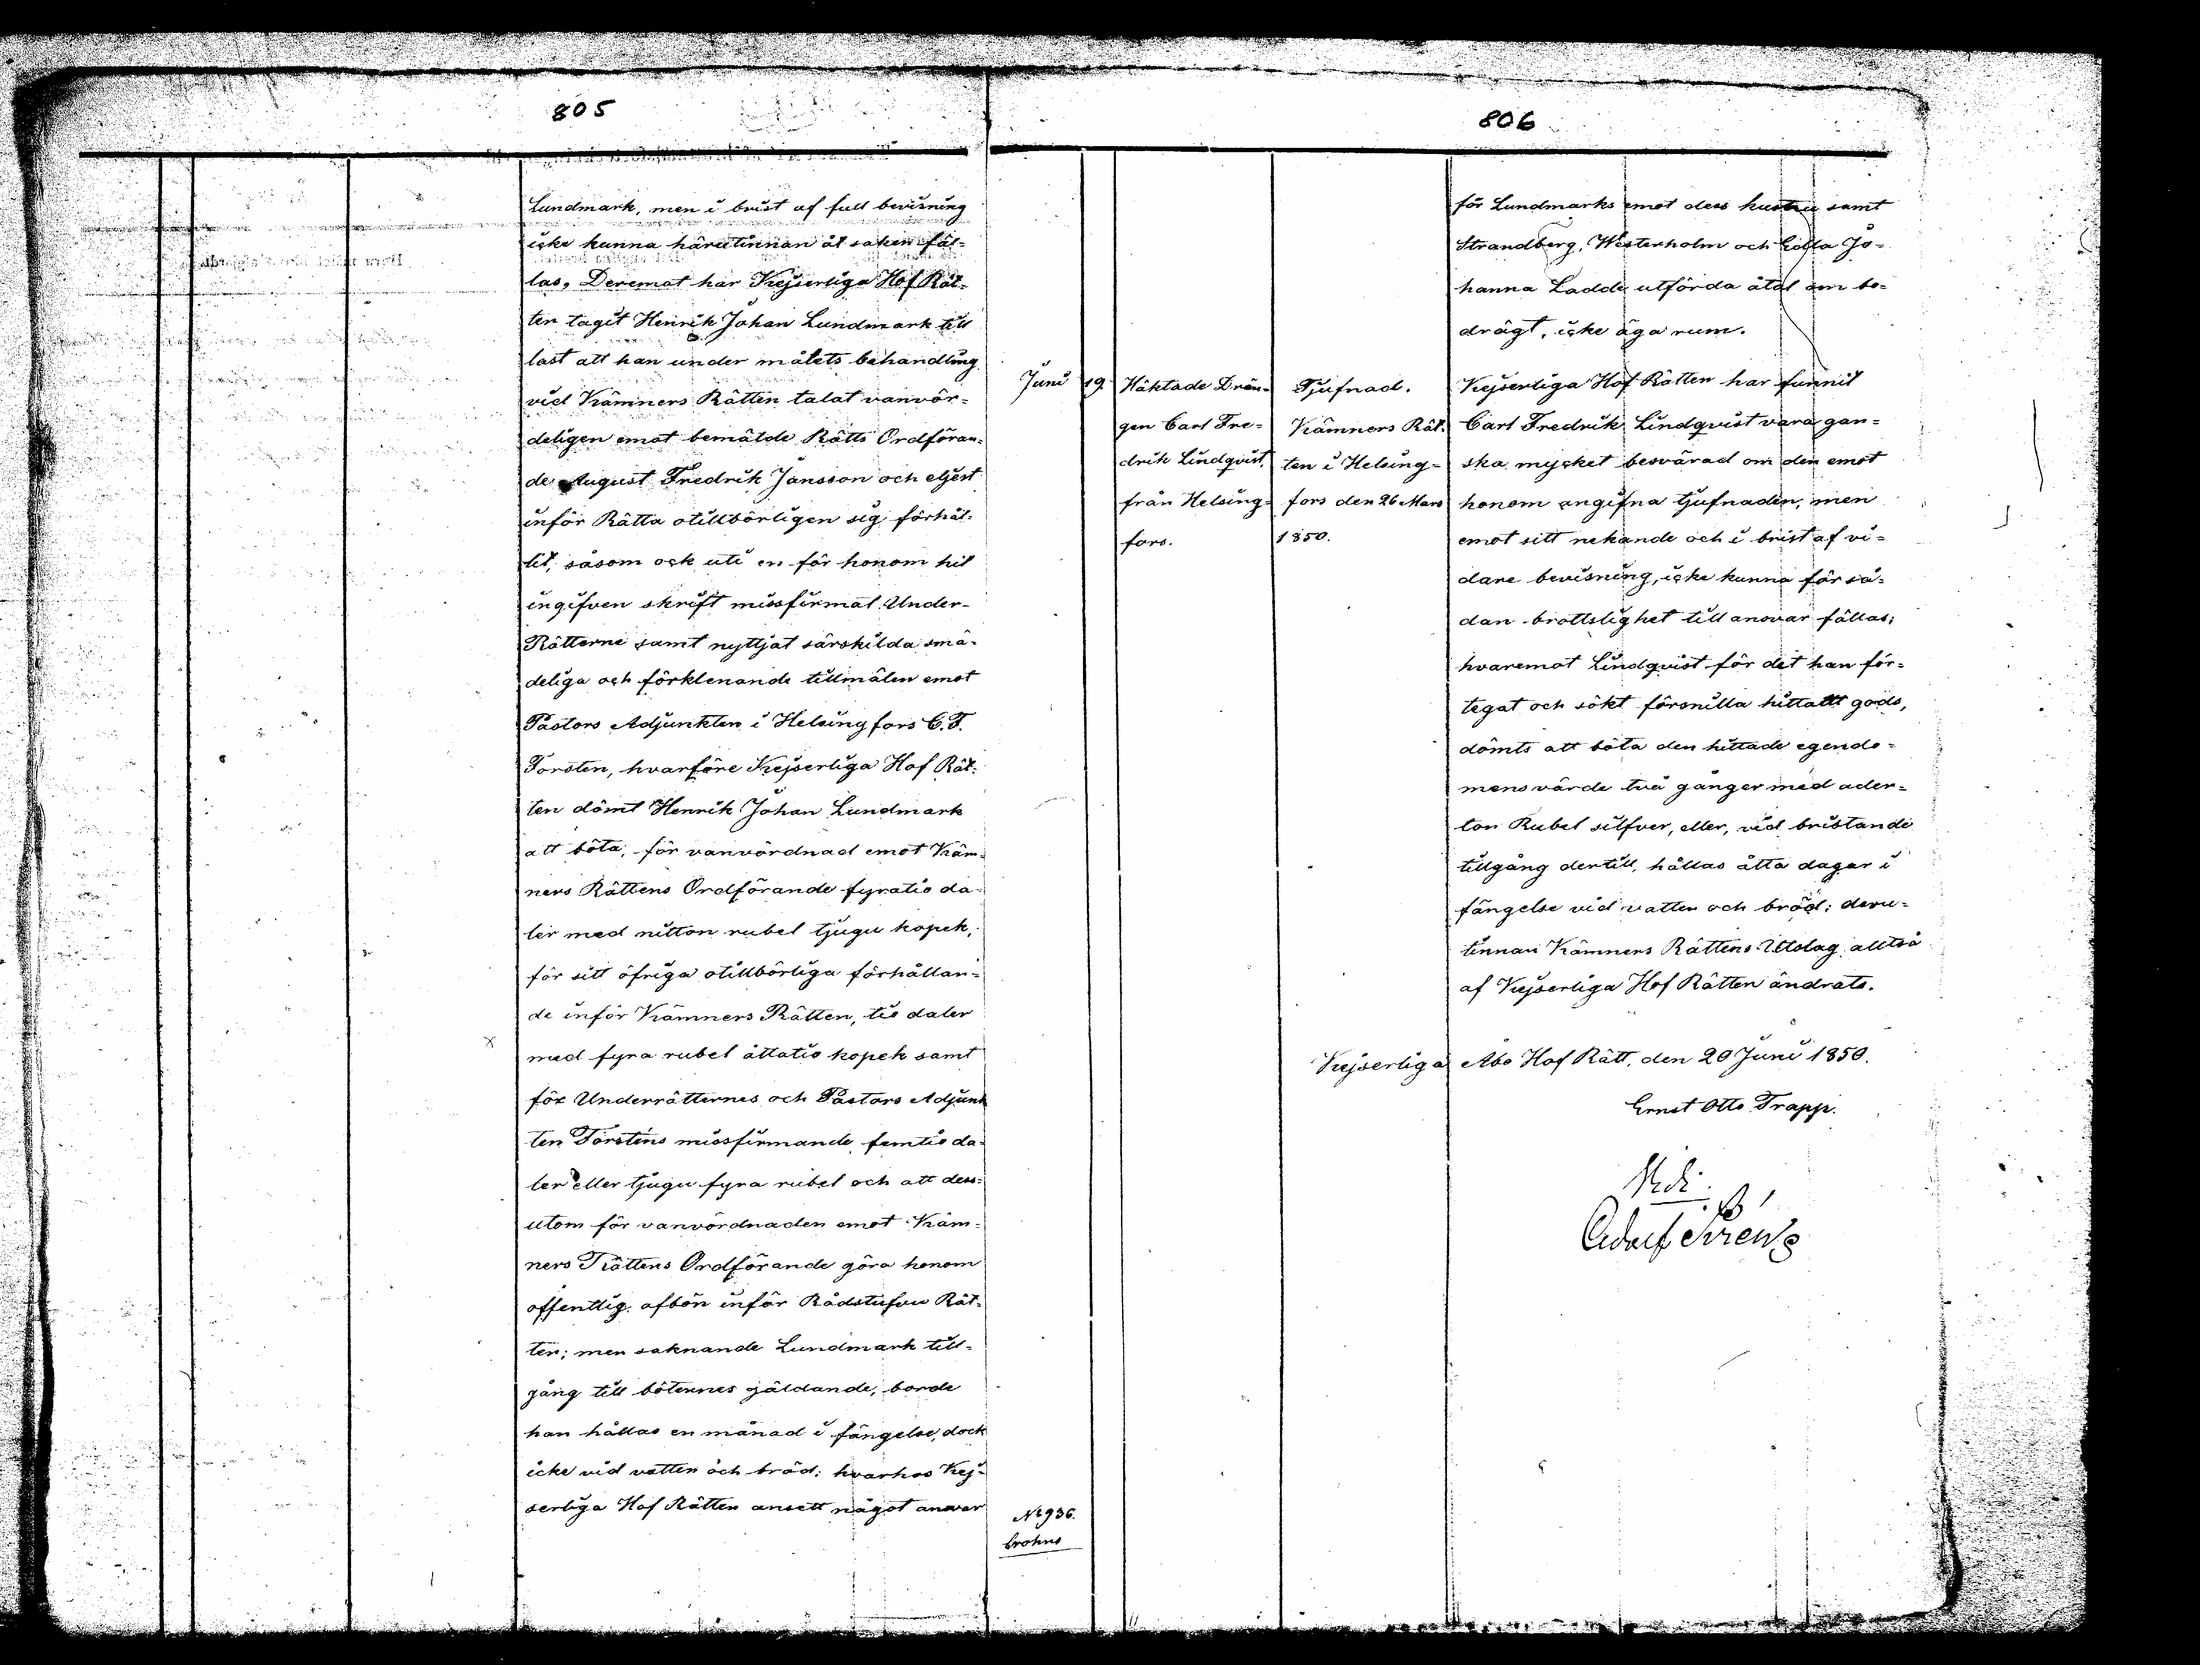 805
Lundmark, men i brist af full bevisning
icke kunna härutinnan åt saken fäl-
las, Deremot har Kejserliga Hof Rät-
ten tagit Henrik Johan Lundmark till
last att han under målets behandling
vid Kämners Rätten talat vanvör-
deligen emot bemälde Rätts Ordföran-
de August Fredrik Jansson och eljest
inför Rätta otillbörligen sig förhål-
lit, såsom ock uti en för honom hit
ingifven skrift missfirmat Under-
Rätterne samt nyttjat särskilda smä-
deliga och förklenande tillmälen emot
Pastors Adjunkten i Helsingfors C. F.
Forsten, hvarföre Kejserliga Hof Rät-
ten dömt Henrik Johan Lundmark
att böta, för vanvördnad emot Käm-
ners Rättens Ordförande fyratio da-
ler med nitton rubel tjugu kopek,
för sitt öfriga otillbörliga förhållan-
de inför Kämners Rätten, tio daler
med fyra rubel åttatio kopek samt
för Underrätternes och Pastors Adjunk
ten Forsténs missfirmande, femtio da-
ler eller tjugu fyra rubel och att dess-
utom för vanvördnaden emot Käm-
ners Rättens Ordförande göra honom
offentlig afbön inför Rådstufvu Rät-
ten; men saknande Lundmark till-
gång till böternes gäldande, borde
han hållas en månad i fängelse, dock
icke vid vatten och bröd; hvarhos Kej-
serliga Hof Rätten ansett något ansvar
806
för Lundmarks emot dess hustru samt
Strandberg, Westerholm och Jo-
hanna Ladde utförda åtal om be-
drägt, icke äga rum.
Juni 19. Häktade Drän-
gen Carl Fre-
drik Lindqvist,
från Helsing-
fors.
Tjufnad.
Kämners Rät-
ten i Helsing-
fors den 26 Mars
1850.
Kejserliga Hof Rätten har funnit
Carl Fredrik Lindqvist vara gan-
ska mycket besvärad om den emot
honom angifna tjufnaden, men
emot sitt nekande och i brist af vi-
dare bevisning, icke kunna för så-
dan brottslighet till ansvar fällas;
hvaremot Lindqvist för det han för-
tegat och sökt försnilla hittatt gods,
dömts att böta den hittade egendo-
mens värde två gånger med ader-
ton Rubel silfver, eller, vid bristande
tillgång dertill, hållas åtta dagar i
fängelse vid vatten och bröd; deru-
tinnan Kämners Rättens Utslag alltså
af Kejserliga Hof Rätten ändrats.
Kejserliga Åbo Hof Rätt, den 20 Juni 1850.
Ernst Otto Trapp.
Vidi
№ 936.